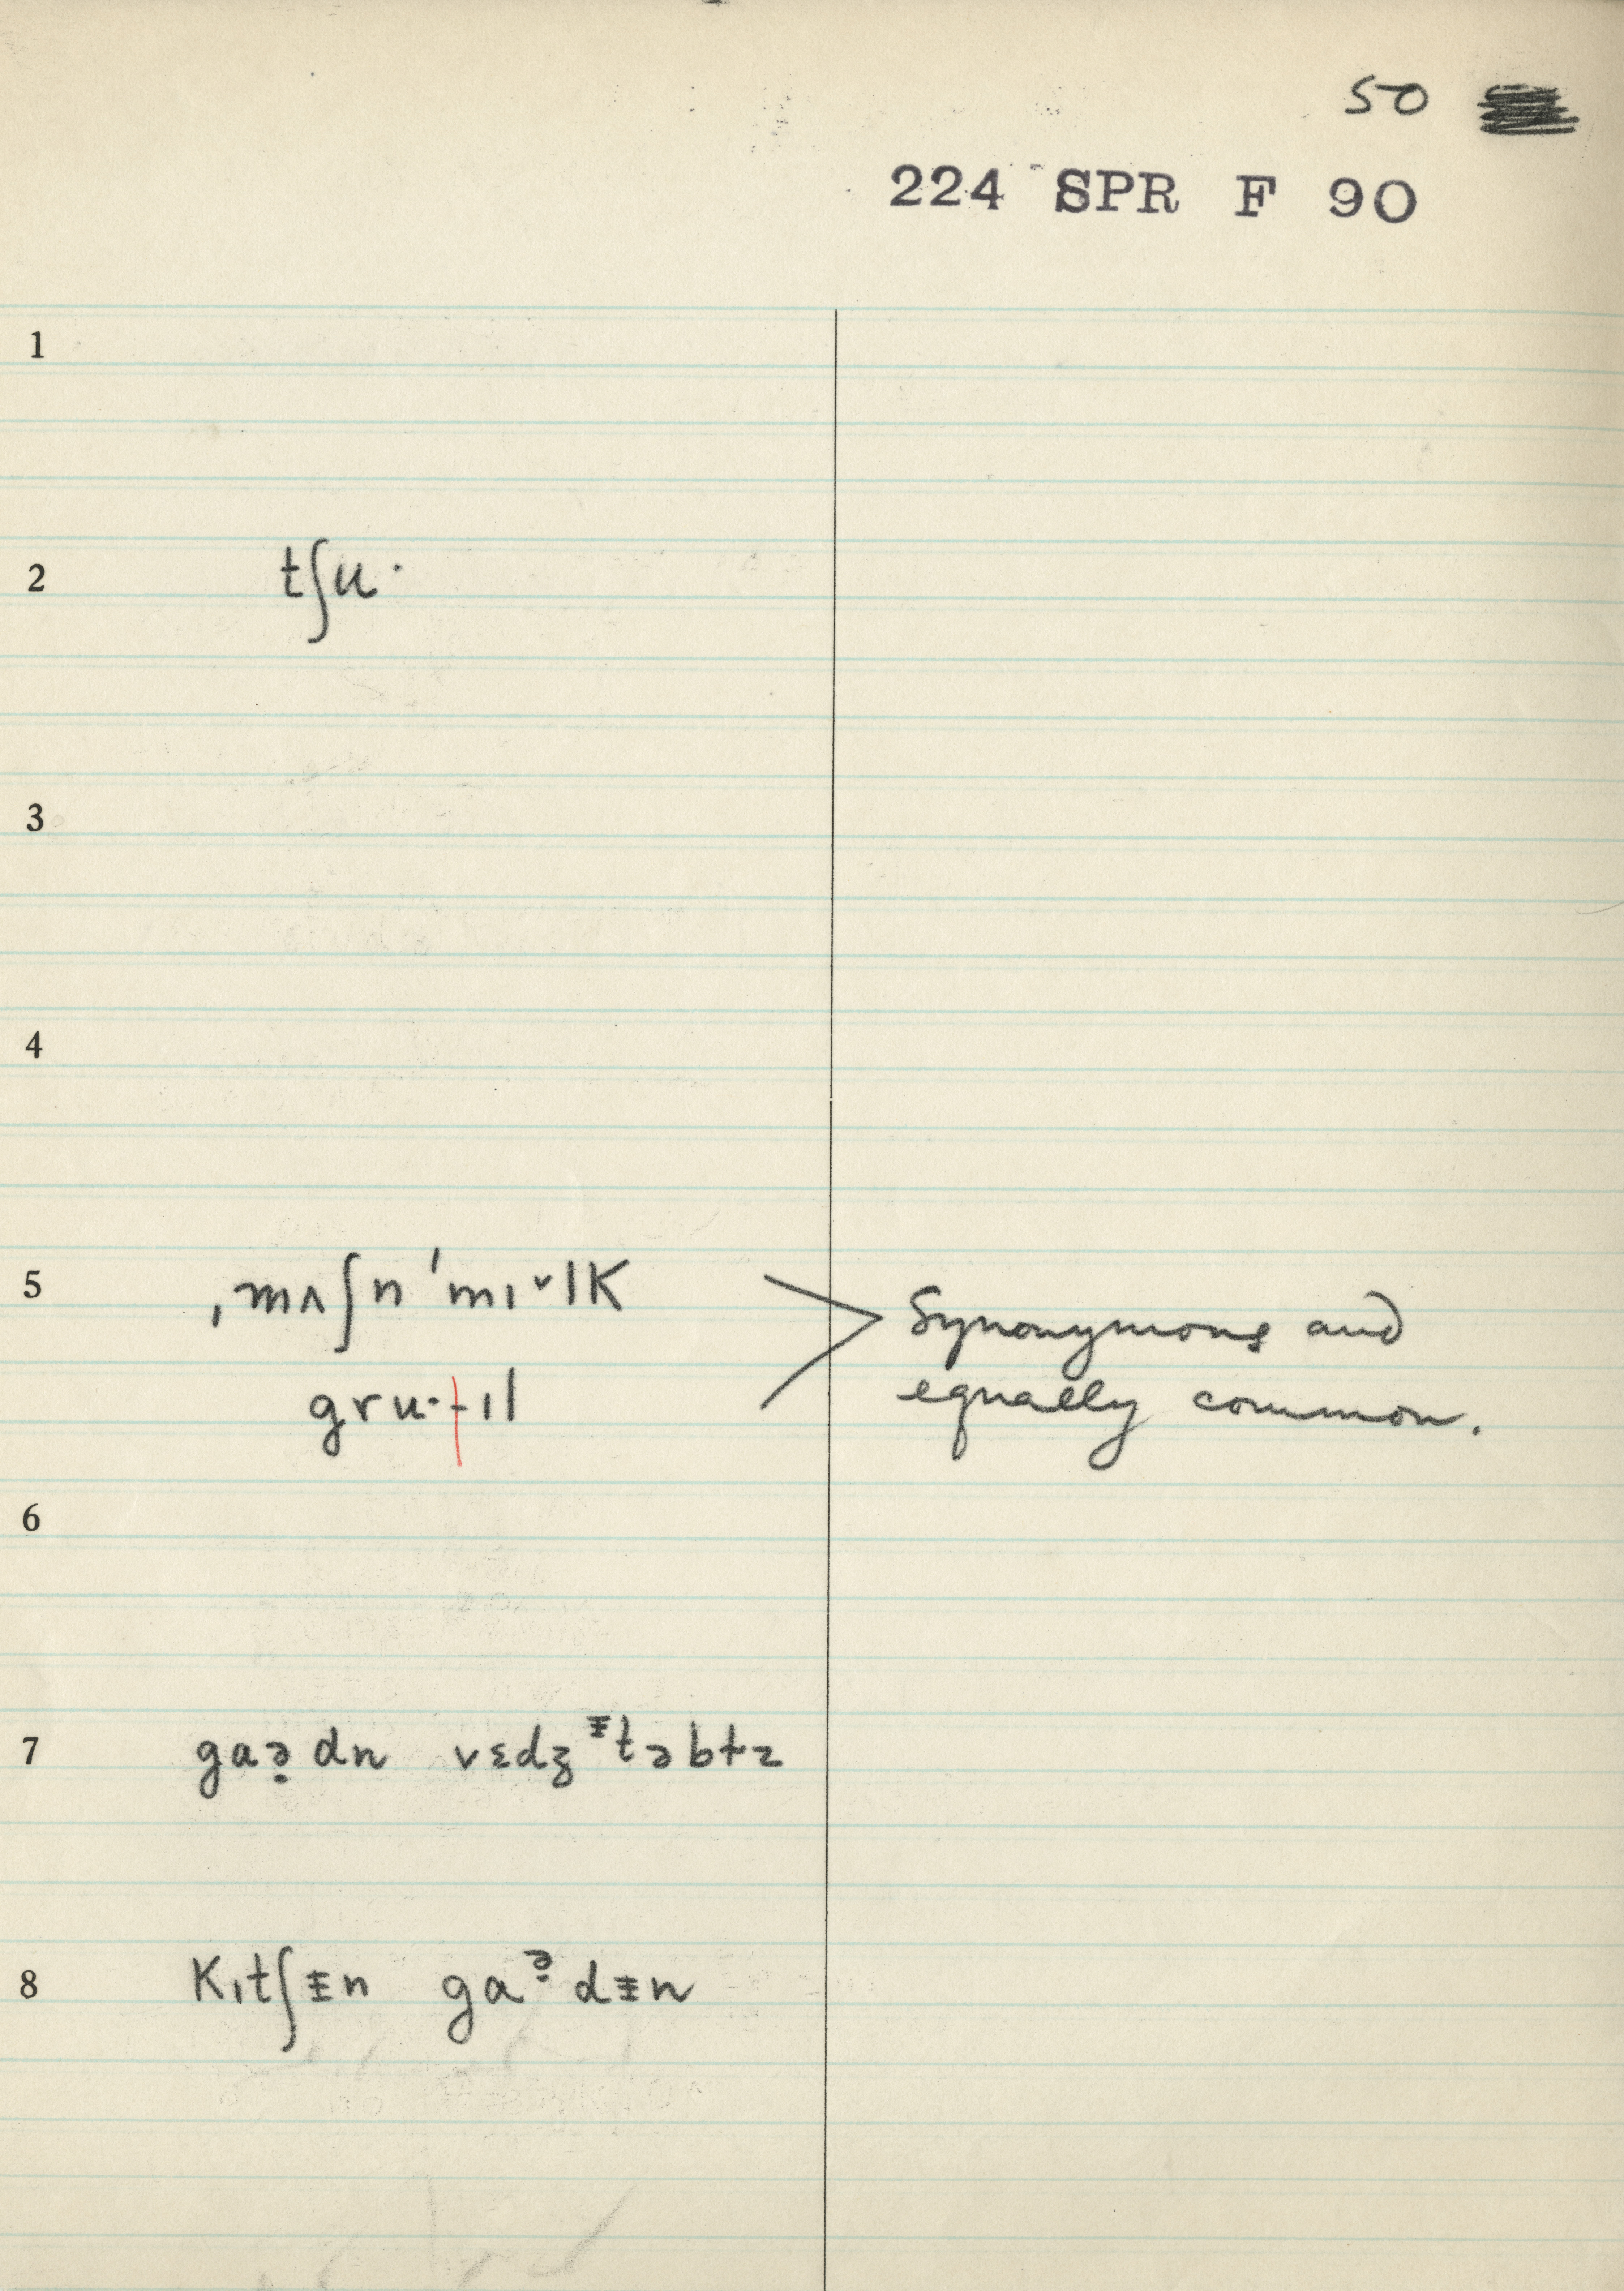 50
224 SPR F 90
1
2 tʃu·
3
4
5 ˌmʌʃn ˈmɪˇlK
Synonymous and
gru·-ɪl
equally common.
6
7 gaə̣dn vɛdʒᵻtəbɫz
8 Kɪtʃᵻn gaᵊ̣dᵻn